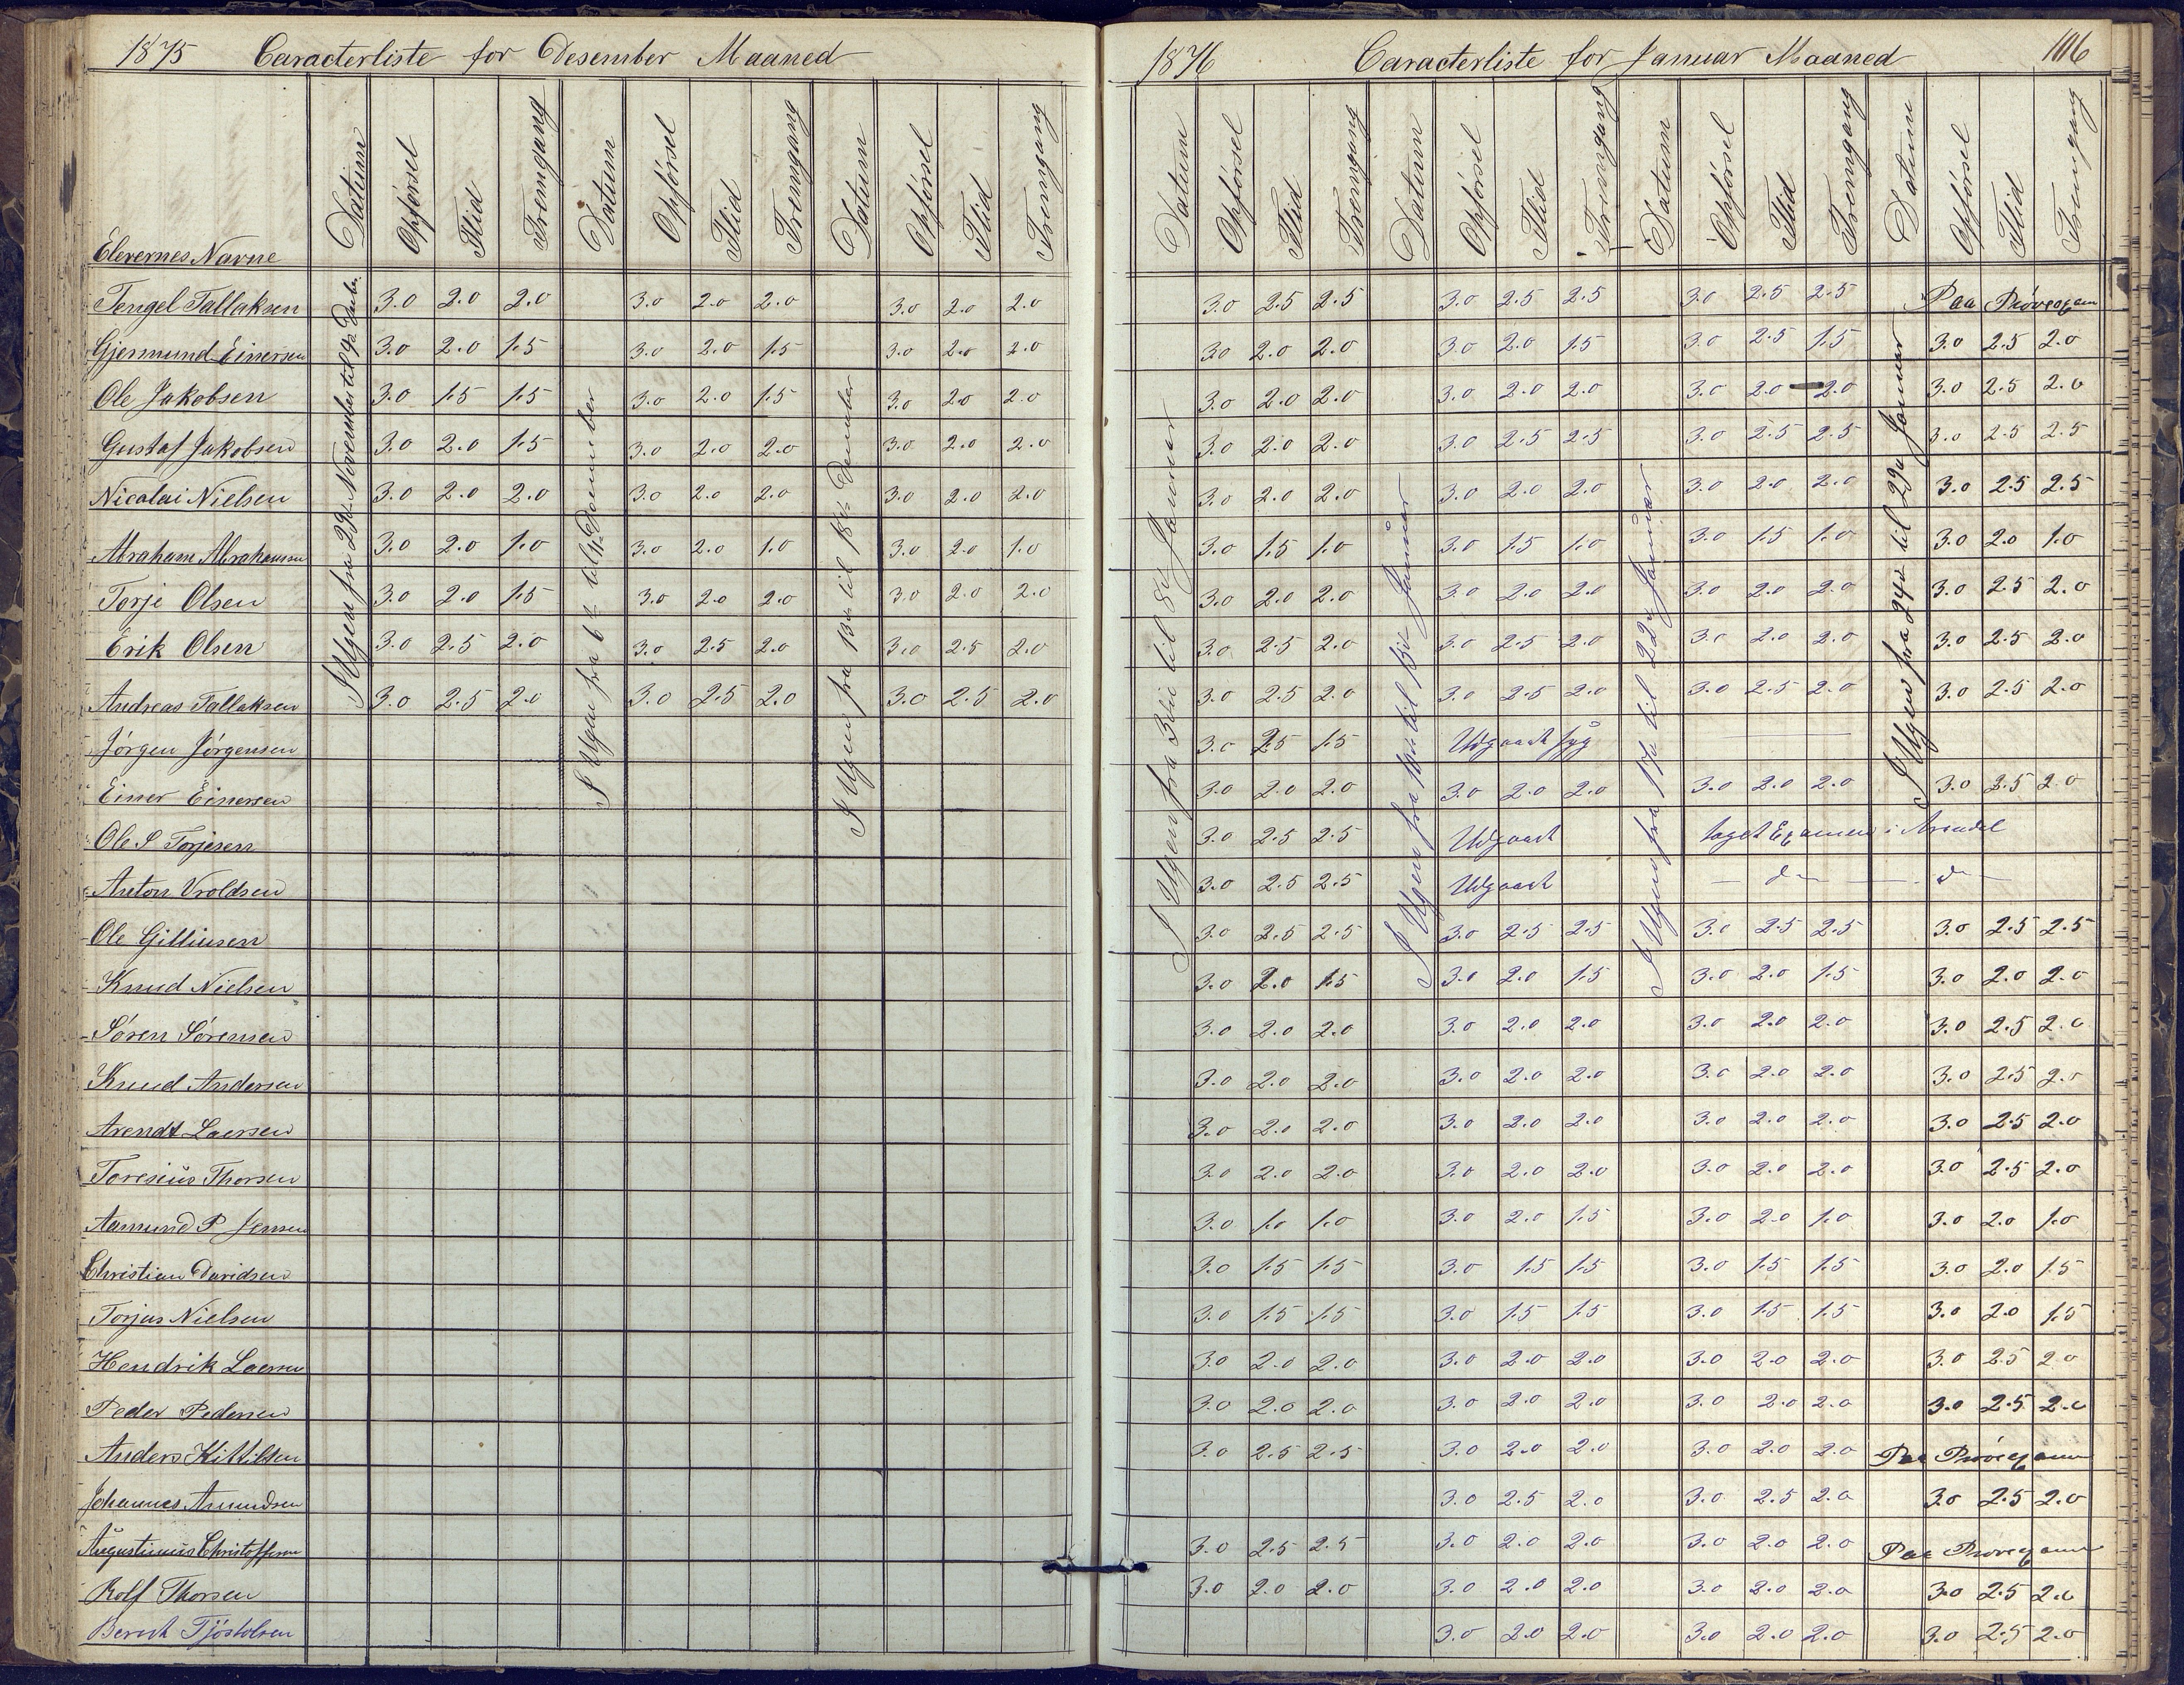 1875 Caracterliste for Desember Maaned
1876 Caracterliste for Januar Maaned 106
Elevernes Navne Datum Opførsel Flid Fremgang Datum Opførsel Flid Fremgang Datum Opførsel Flid Fremgang Datum Opførsel Flid Fremgang Datum Opførsel Flid Fremgang Datum Opførsel Flid Fremgang Datum Opførsel Flid Fremgang
I Ugen fra 29de November til 4de Decbr.
I Ugen fra 6te til 11te Desember
I Ugen fra 13de til 18de Desember
I Ugen fra 3die til 8de Januar
I Ugen fra 10de til 15de Januar
I Ugen fra 17de til 22de Januar
I Ugen fra 24de til 29de Januar
Tengel Tallaksen 3.0 2.0 2.0 3.0 2.0 2.0 3.0 2.0 2.0 3.0 2.5 2.5 3.0 2.5 2.5 3.0 2.5 2.5 Paa Prøveexamen
Gjermund Einersen 3.0 2.0 1.5 3.0 2.0 1.5 3.0 2.0 2.0 3.0 2.0 2.0 3.0 2.0 1.5 3.0 2.5 1.5 3.0 2.5 2.0
Ole Jakobsen 3.0 1.5 1.5 3.0 2.0 1.5 3.0 2.0 2.0 3.0 2.0 2.0 3.0 2.0 2.0 3.0 2.0 2.0 3.0 2.5 2.0
Gustaf Jakobsen 3.0 2.0 1.5 3.0 2.0 2.0 3.0 2.0 2.0 3.0 2.0 2.0 3.0 2.5 2.5 3.0 2.5 2.5 3.0 2.5 2.5
Nicolai Nielsen 3.0 2.0 2.0 3.0 2.0 2.0 3.0 2.0 2.0 3.0 2.0 2.0 3.0 2.0 2.0 3.0 2.0 2.0 3.0 2.5 2.5
Abraham Abrahamsen 3.0 2.0 1.0 3.0 2.0 1.0 3.0 2.0 1.0 3.0 1.5 1.0 3.0 1.5 1.0 3.0 1.5 1.0 3.0 2.0 1.0
Torje Olsen 3.0 2.0 1.5 3.0 2.0 2.0 3.0 2.0 2.0 3.0 2.0 2.0 3.0 2.0 2.0 3.0 2.0 2.0 3.0 2.5 2.0
Erik Olsen 3.0 2.5 2.0 3.0 2.5 2.0 3.0 2.5 2.0 3.0 2.5 2.0 3.0 2.5 2.0 3.0 2.0 2.0 3.0 2.5 2.0
Andreas Tallaksen 3.0 2.5 2.0 3.0 2.5 2.0 3.0 2.5 2.0 3.0 2.5 2.0 3.0 2.5 2.0 3.0 2.5 2.0 3.0 2.5 2.0
Jørgen Jørgensen 3.0 2.5 1.5 Udgaaet syg
Einer Einersen 3.0 2.0 2.0 3.0 2.0 2.0 3.0 2.0 2.0 3.0 2.5 2.0
Ole S Torjesen 3.0 2.5 2.5 Udgaaet taget Examen i Arendal
Anton Vroldsen 3.0 2.5 2.5 Udgaaet — do — do —
Ole Gilliusen 3.0 2.5 2.5 3.0 2.5 2.5 3.0 2.5 2.5 3.0 2.5 2.5
Knud Nielsen 3.0 2.0 1.5 3.0 2.0 1.5 3.0 2.0 1.5 3.0 2.0 2.0
Søren Sørensen 3.0 2.0 2.0 3.0 2.0 2.0 3.0 2.0 2.0 3.0 2.5 2.0
Knud Andersen 3.0 2.0 2.0 3.0 2.0 2.0 3.0 2.0 2.0 3.0 2.5 2.0
Arendt Laersen 3.0 2.0 2.0 3.0 2.0 2.0 3.0 2.0 2.0 3.0 2.5 2.0
Toresius Thorsen 3.0 2.0 2.0 3.0 2.0 2.0 3.0 2.0 2.0 3.0 2.5 2.0
Aamund P Jensen 3.0 1.0 1.0 3.0 2.0 1.5 3.0 2.0 1.0 3.0 2.0 1.0
Christian Davidsen 3.0 1.5 1.5 3.0 1.5 1.5 3.0 1.5 1.5 3.0 2.0 1.5
Torjus Nielsen 3.0 1.5 1.5 3.0 1.5 1.5 3.0 1.5 1.5 3.0 2.0 1.5
Hendrik Laersen 3.0 2.0 2.0 3.0 2.0 2.0 3.0 2.0 2.0 3.0 2.5 2.0
Peder Pedersen 3.0 2.0 2.0 3.0 2.0 2.0 3.0 2.0 2.0 3.0 2.5 2.0
Anders Kittilsen 3.0 2.5 2.5 3.0 2.0 2.0 3.0 2.0 2.0 Paa Prøveexamen
Johannes Amundsen 3.0 2.5 2.0 3.0 2.5 2.0 3.0 2.5 2.0
Augustinus Christoffersen 3.0 2.5 2.5 3.0 2.0 2.0 3.0 2.0 2.0 Paa Prøveexamen
Rolf Thorsen 3.0 2.0 2.0 3.0 2.0 2.0 3.0 2.0 2.0 3.0 2.5 2.0
Berent Tjøstolsen 3.0 2.0 2.0 3.0 2.0 2.0 3.0 2.5 2.0